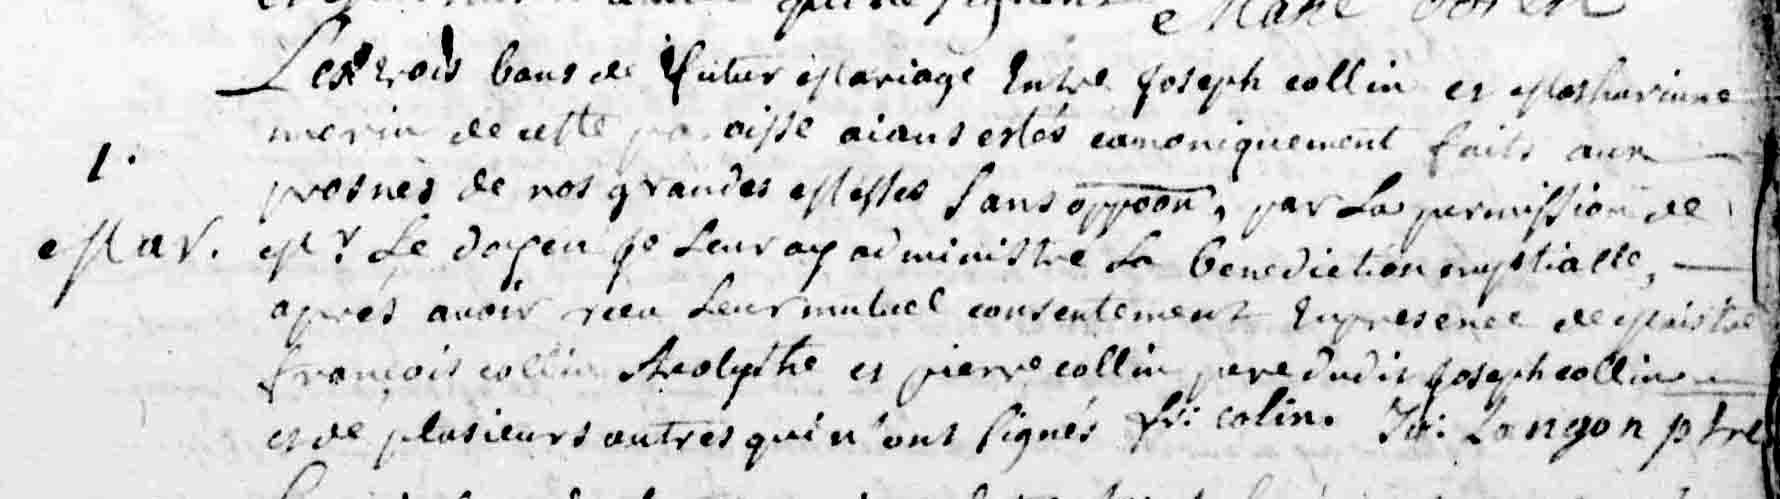 Les trois bans de futur Mariage Entre Joseph collin et Mathurinne
merin de cette paroisse aians estés canoniquement faits aux
prosnes de nos grandes Messes sans oppoon, par La permission de
1.
Mar.
Mr Le doyen Je Leur ay administre La benediction nuptialle,
apres avoir receu Leur mutuel consentement En presence de Maistre
françois collin Acolythe et pierre collin pere dudit Joseph collin
et de plusieurs autres qui n'ont signés fr: colin. Langon ptre